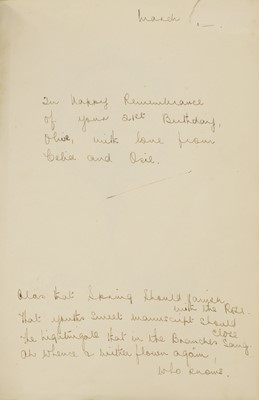 March 1
In Happy Remembrance
of your 21st Birthday,
Olive, with love from
Celia and Osie.
Alas that Spring should vanish
with the Rose.
That youth's sweet manuscript should
close
The nightingale that in the Branches Sang
Ah whence & whither flown again,
Who knows.